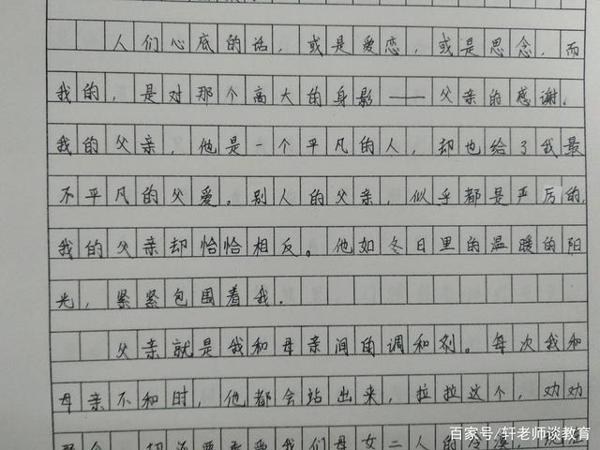 人们心底的话，或是爱恋，或是思念，而
我的，是对那个高大的身影——父亲的感谢．
我的父亲，他是一个平凡的人，却也给了我最
不平凡的父爱。别人的父亲，似乎都是严厉的，
我的父亲却恰恰相反。他如冬日里的温暖的阳
光，紧紧包围着我．
父亲就是我和母亲间的调和剂。每次我和
母亲不和时，他都会站出来，拉拉这个，劝劝
我们母女二人的
百家号/轩老师谈教育